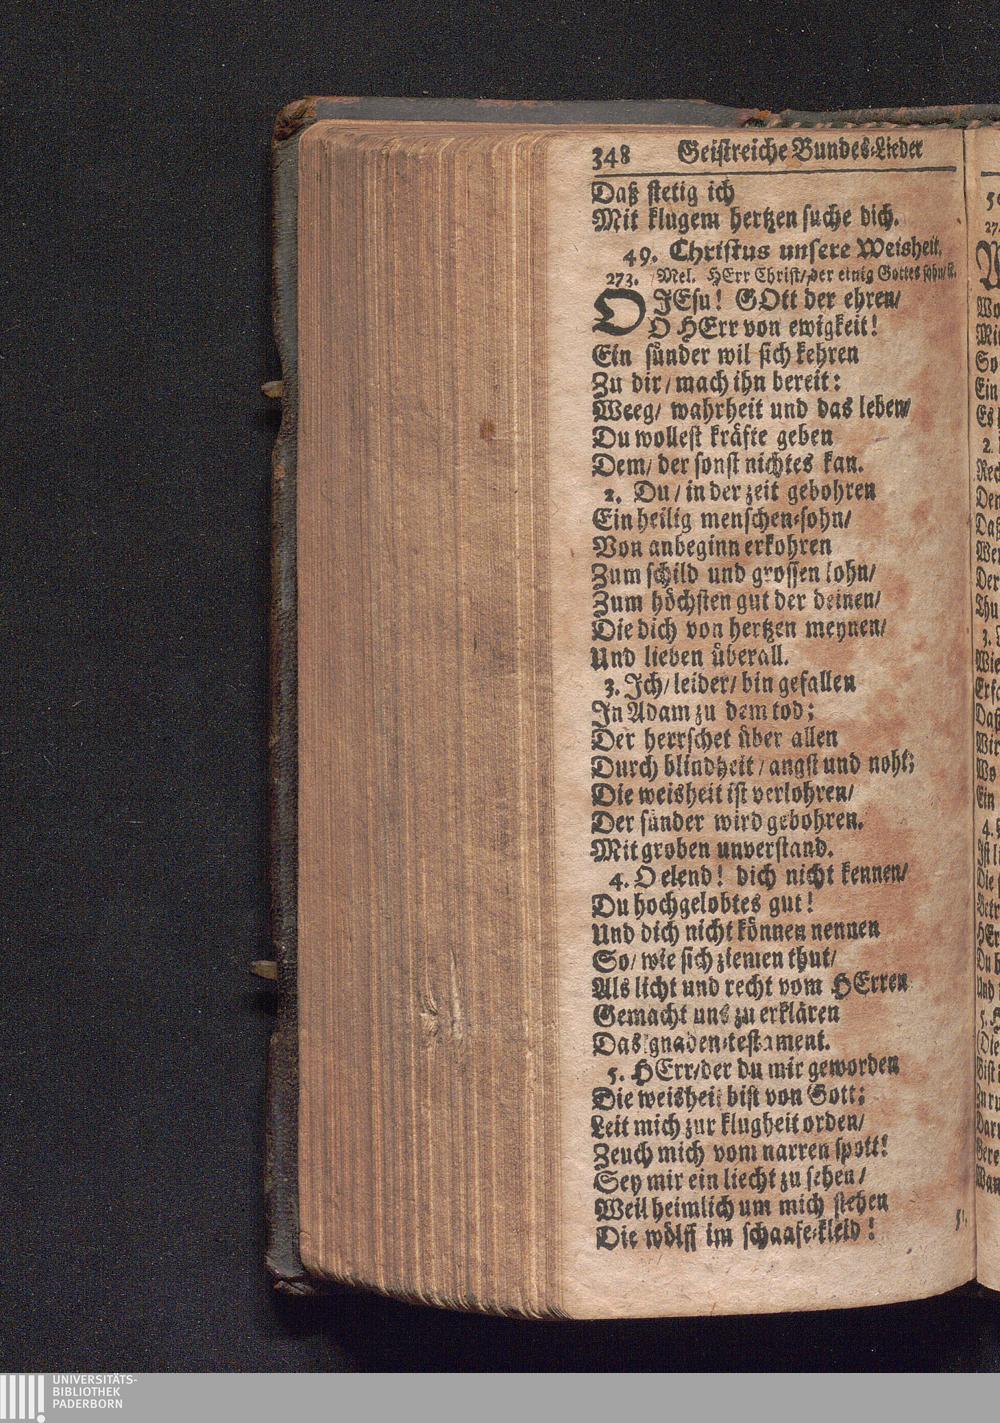 348 Geistreiche Bundes-Lieder
Daß stetig ich
Mit klugem hertzen suche dich.
49. Christus unsere Weisheit.
273. Mel. HErr Christ/der einig Gottes sohn/
O JEsu! GOtt der ehren/
O HErr von ewigkeit!
Ein sünder wil sich kehren
Zu dir/ mach ihn bereit:
Weeg/ wahrheit und das leben/
Du wollest kräfte geben
Dem/ der sonst nichtes kan.
2. Du/ in der zeit gebohren
Ein heilig menschen-sohn/
Von anbeginn erkohren
Zum schild und grossen lohn/
Zum höchsten gut der deinen/
Die dich von hertzen meynen/
Und lieben überall.
3. Ich/ leider/ bin gefallen
In Adam zu dem tod;
Der herrschet über allen
Durch blindheit/ angst und noht;
Die weisheit ist verlohren/
Der sünder wird gebohren.
Mit groben unverstand.
4. O elend! dich nicht kennen/
Du hochgelobtes gut!
Und dich nicht können nennen
So/ wie sich ziemen thut/
Als licht und recht vom HErren
Gemacht uns zu erklären
Das gnaden-testament.
5. HErr/der du mir geworden
Die weisheit bist von Gott;
Leit mich zur klugheit orden/
Zeuch mich vom narren spott!
Sey mir ein liecht zu sehen/
Weil heimlich um mich stehen
Die wölff im schaafe-kleid!
UNIVERSITÄTS-
BIBLIOTHEK
PADERBORN